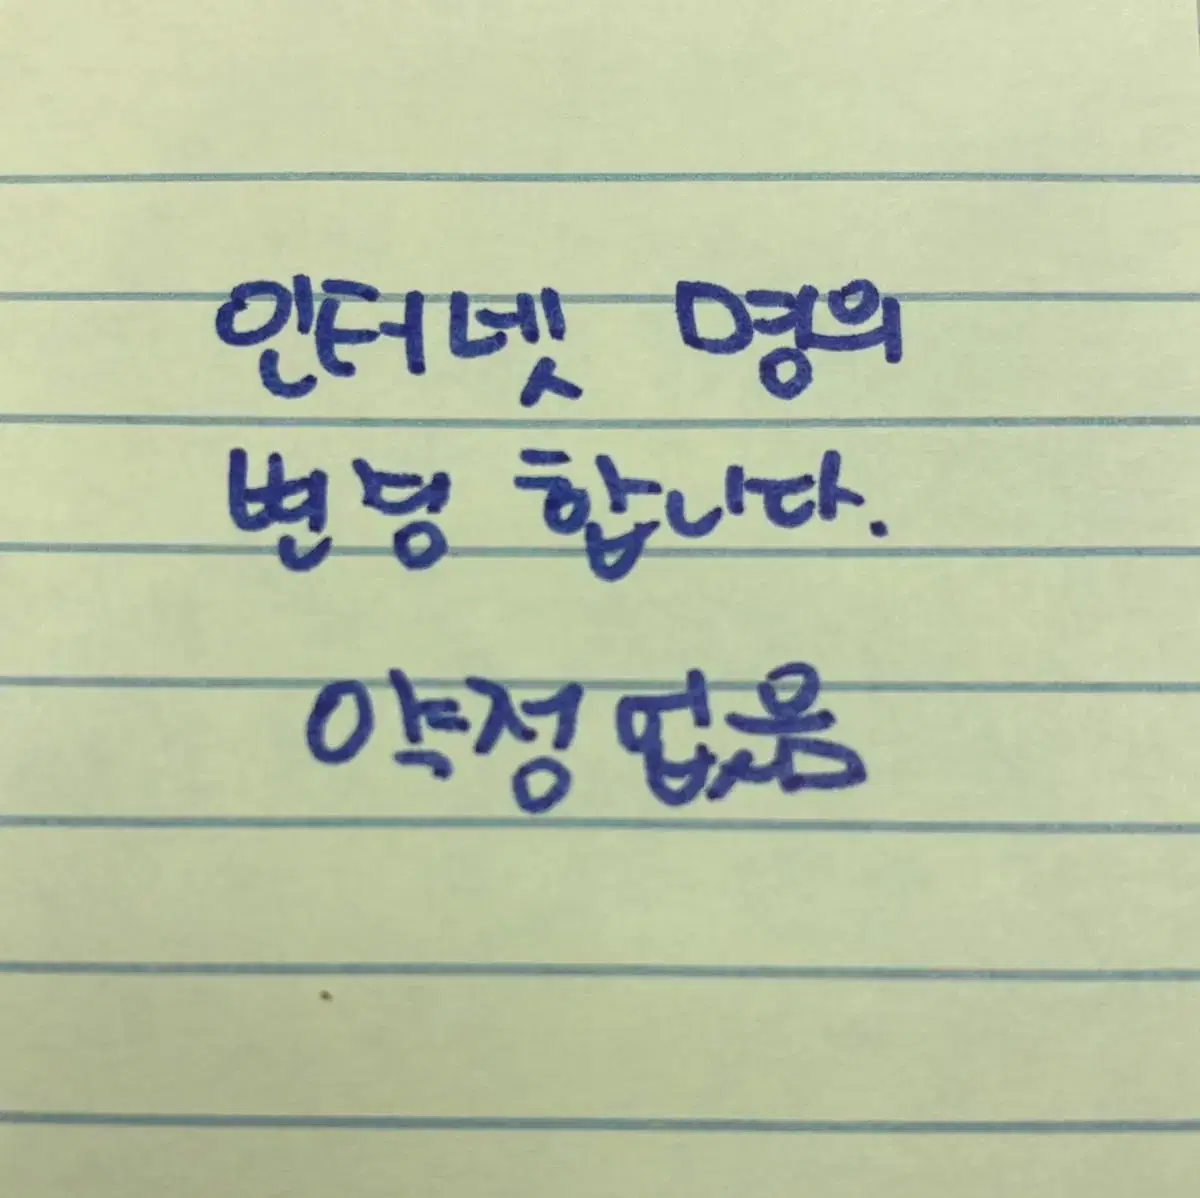 인터넷 명의
변경 합니다.
약정 없음